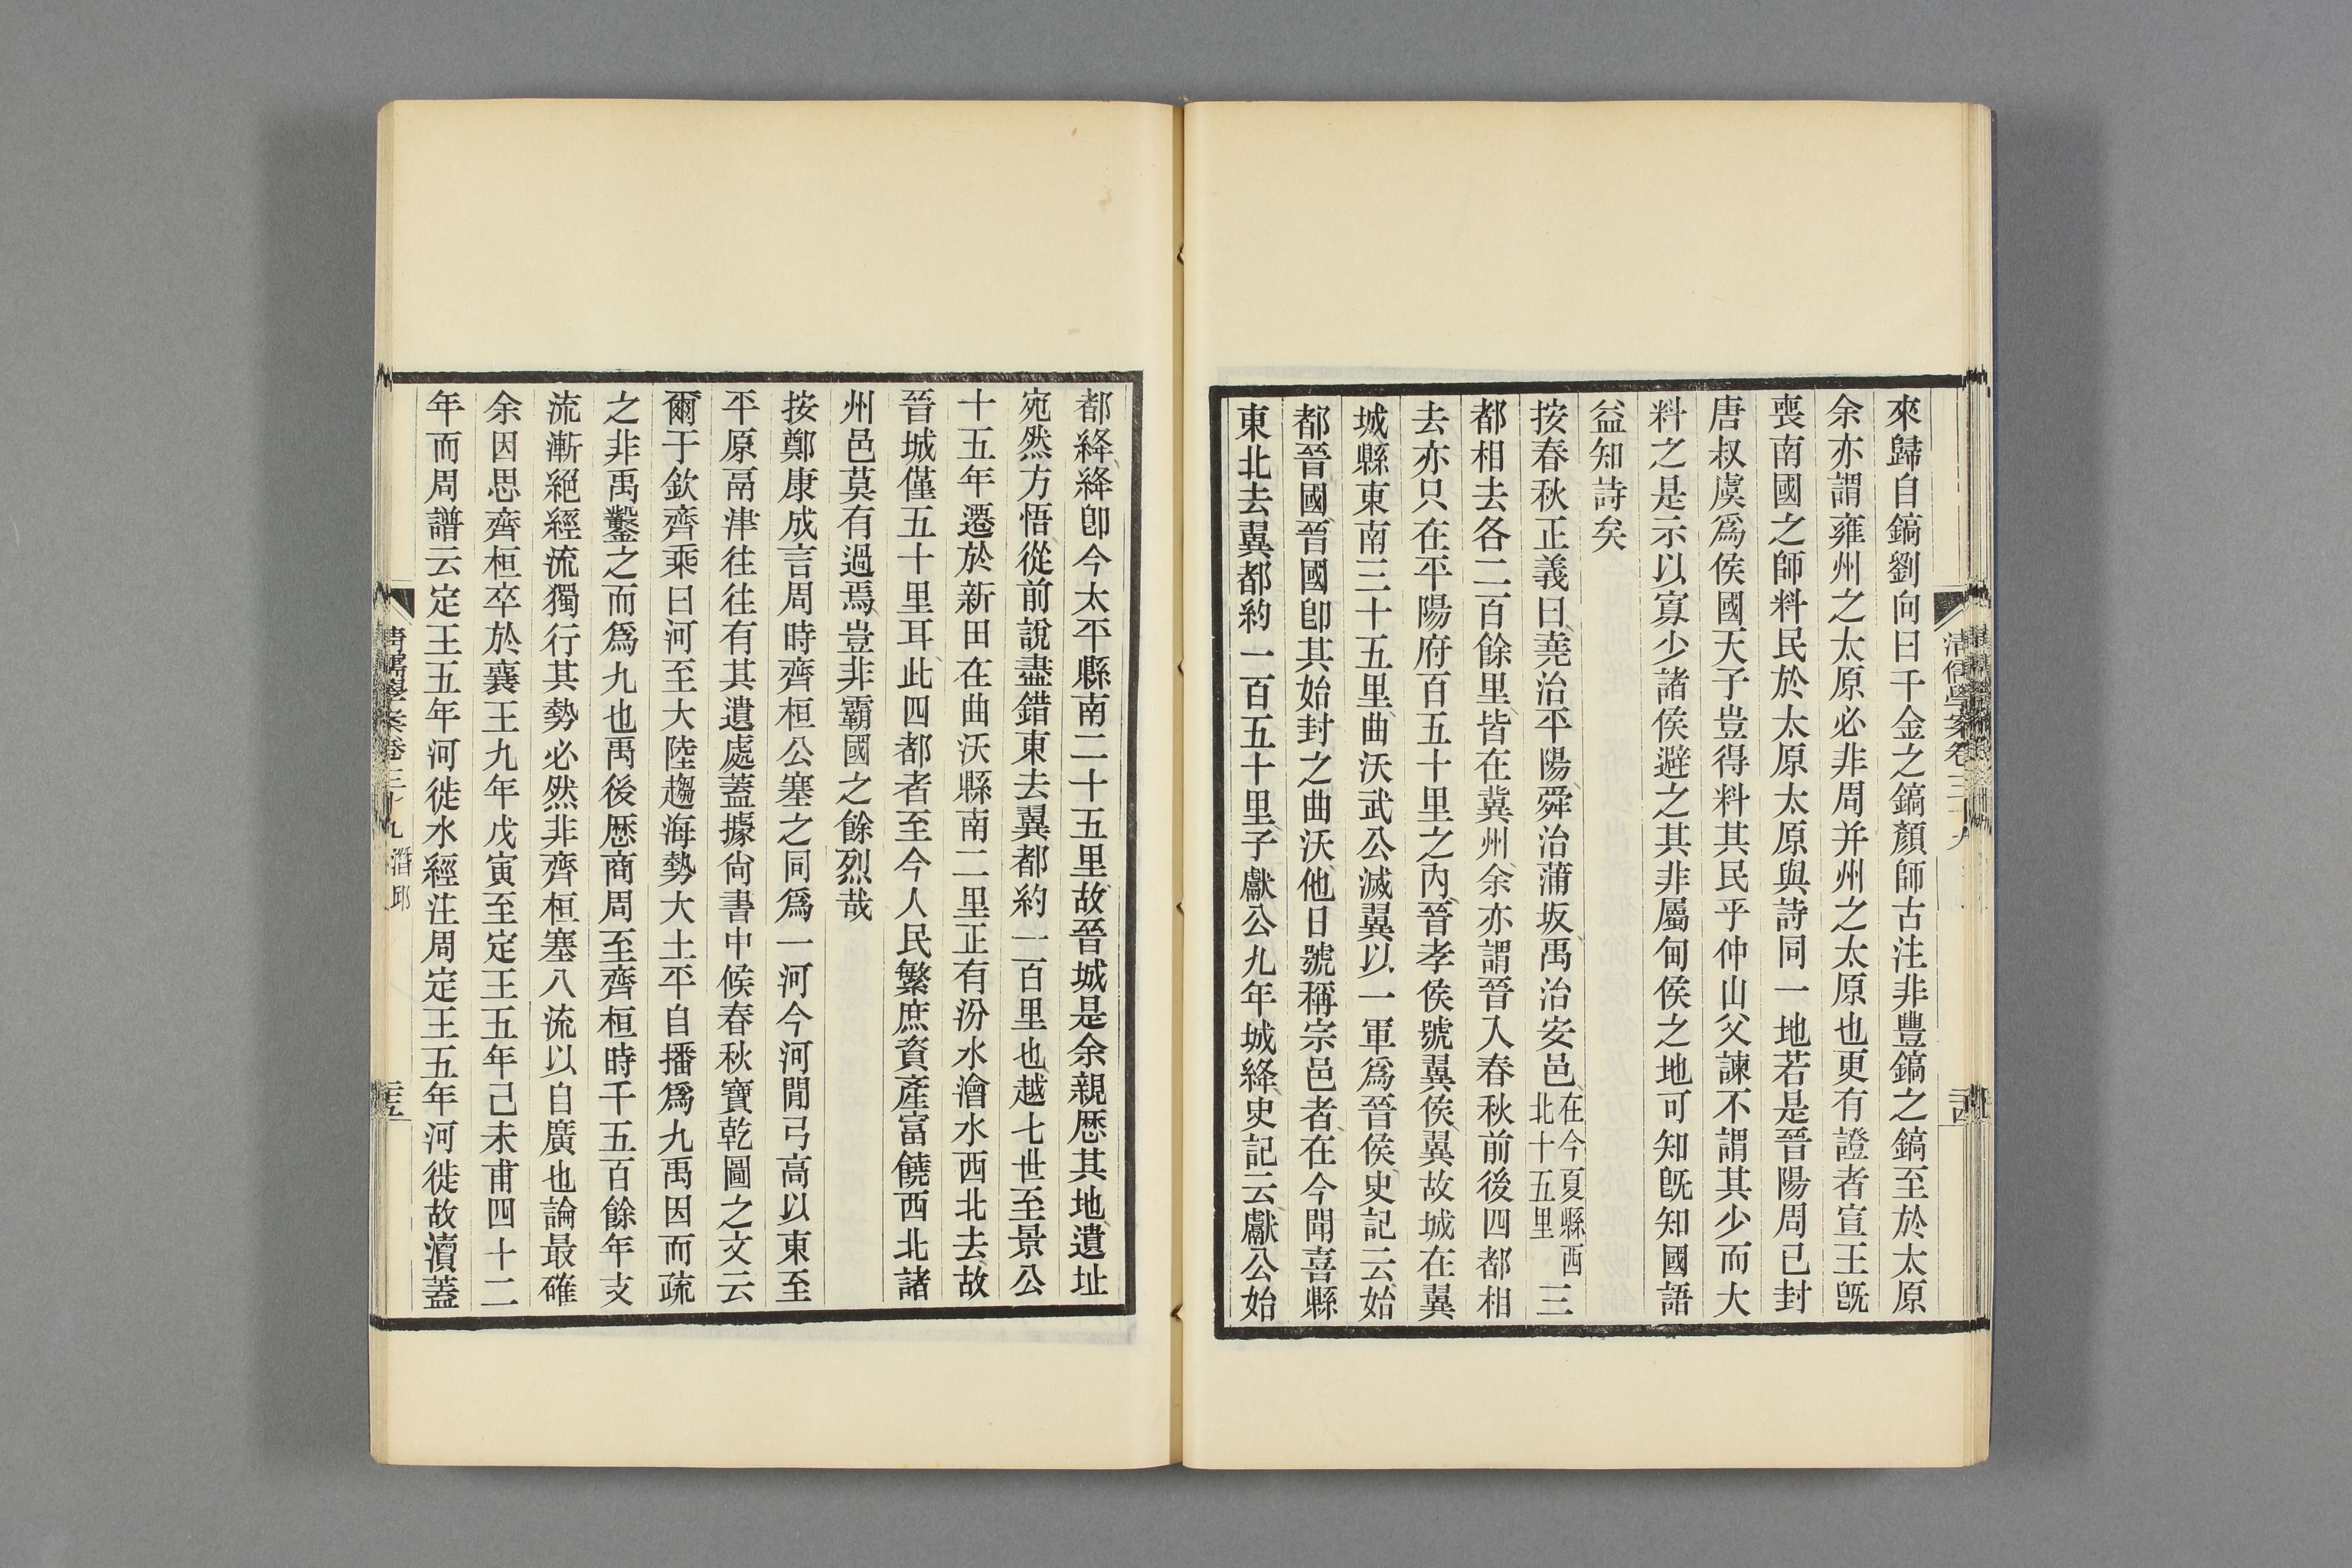 來歸自鎬劉向曰千金之鎬顏師古注非豐鎬之鎬至於太原
余亦謂雍州之太原必非周并州之太原也更有證者宣王旣
喪南國之師料民於太原太原與詩同一地若是晉陽周已封
唐叔虞爲侯國天子豈得料其民乎仲山父諫不謂其少而大
料之是示以寡少諸侯避之其非屬甸侯之地可知旣知國語
益知詩矣
按春秋正義曰堯治平陽舜治蒲坂禹治安邑在今夏縣西北十五里三
都相去各二百餘里皆在冀州余亦謂晉入春秋前後四都相
去亦只在平陽府百五十里之內晉孝侯號翼侯翼故城在翼
城縣東南三十五里曲沃武公滅翼以一軍爲晉侯史記云始
都晉國晉國卽其始封之曲沃他日號稱宗邑者在今聞喜縣
東北去翼都約一百五十里子獻公九年城絳史記云獻公始
都絳絳卽今太平縣南二十五里故晉城是余親歷其地遺址
宛然方悟從前說盡錯東去翼都約一百里也越七世至景公
十五年遷於新田在曲沃縣南二里正有汾水澮水西北去故
晉城僅五十里耳此四都者至今人民繁庶資產富饒西北諸
州邑莫有過焉豈非霸國之餘烈哉
按鄭康成言周時齊桓公塞之同爲一河今河閒弓高以東至
平原鬲津往往有其遺處蓋據尙書中候春秋寶乾圖之文云
爾于欽齊乘曰河至大陸趨海勢大土平自播爲九禹因而疏
之非禹鑿之而爲九也禹後歷商周至齊桓時千五百餘年支
流漸絕經流獨行其勢必然非齊桓塞八流以自廣也論最確
余因思齊桓卒於襄王九年戊寅至定王五年己未甫四十二
年而周譜云定王五年河徙水經注周定王五年河徙故瀆蓋
清儒學案卷三十九 潛邱